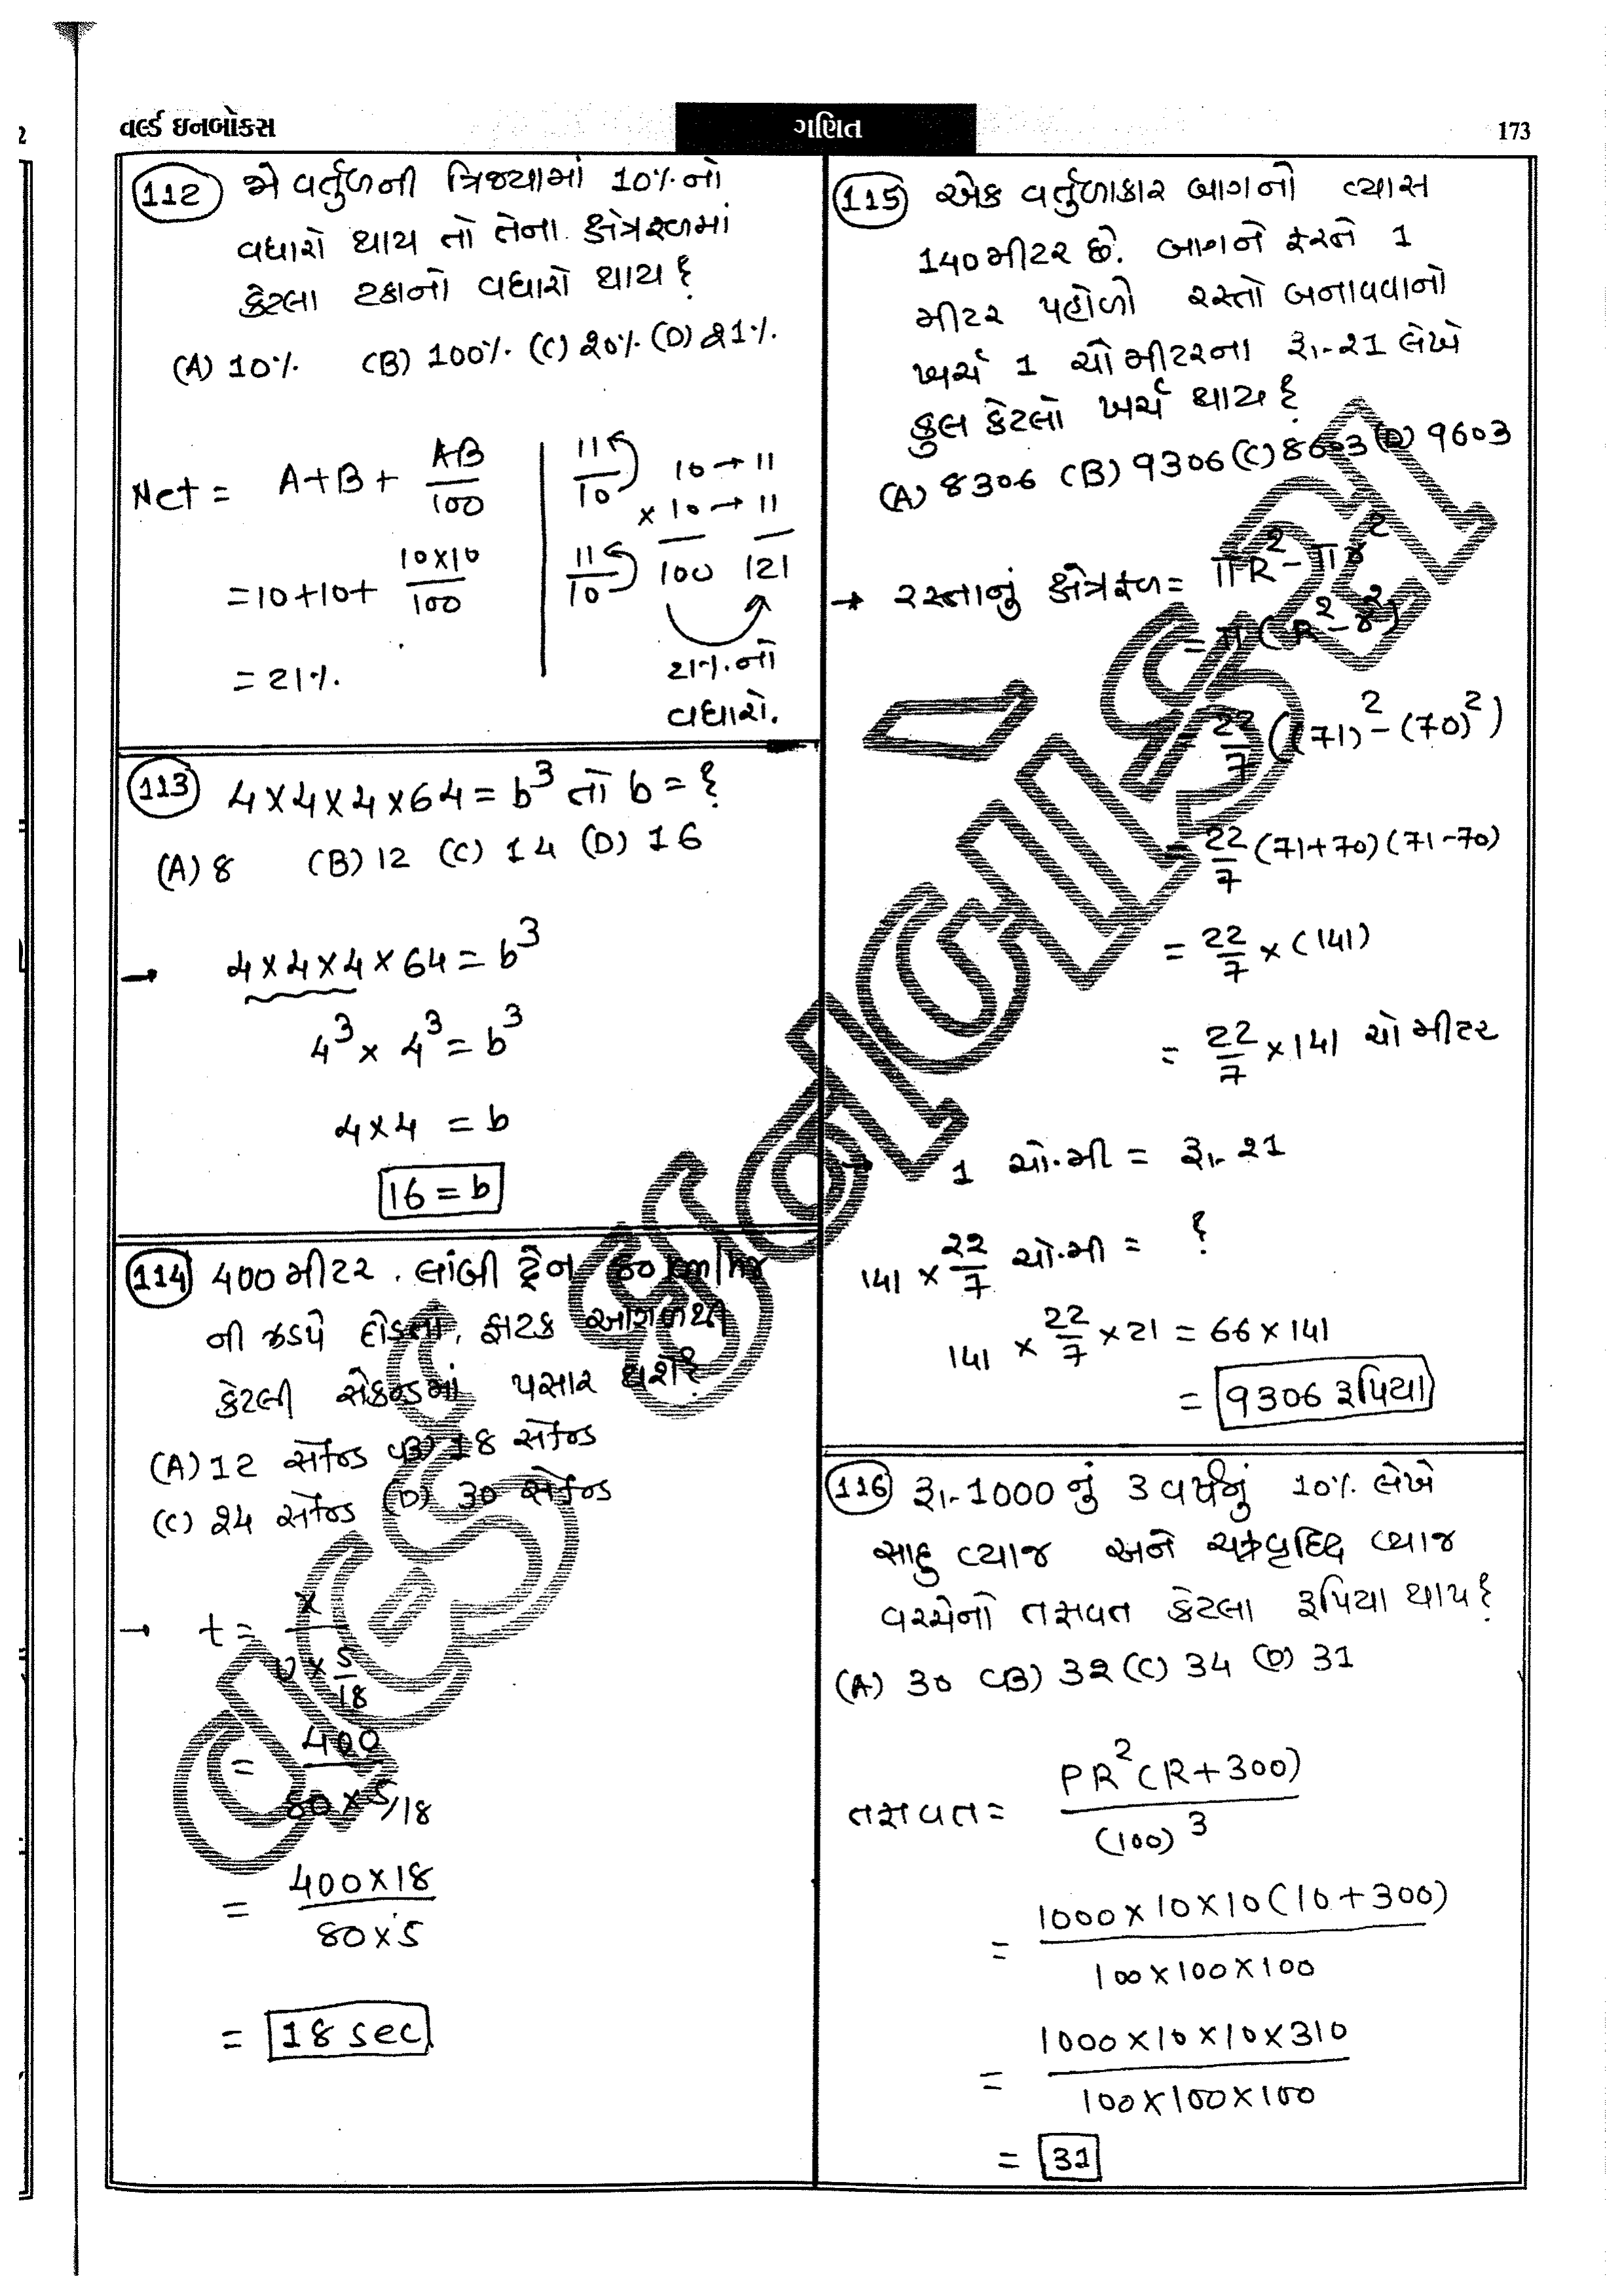 વર્લ્ડ ઇનબોક્સ
ગણિત
173
112 જો વર્તુળની ત્રિજ્યામાં 10% નો
વધારો થાય તો તેના ક્ષેત્રફળમાં
કેટલા ટકાનો વધારો થાય?
(A) 10% (B) 100% (C) 20% (D) 21%
Net = A+B+ AB/100
= 10+10+ 10×10/100
= 21%
11/10 10→11
× 10→11
11/10 100 121
21% નો
વધારો.
113 4×4×4×64 = b³ તો b = ?
(A) 8 (B) 12 (C) 14 (D) 16
→ 4×4×4×64 = b³
4³ × 4³ = b³
4×4 = b
16 = b
114 400 મીટર લાંબી ટ્રેન 80 km/hr
ની ઝડપે દોડતા, ફાટક આગળથી
કેટલી સેકન્ડમાં પસાર થશે?
(A) 12 સેકન્ડ (B) 18 સેકન્ડ
(C) 24 સેકન્ડ (D) 30 સેકન્ડ
→ t = x / v × 5/18
= 400 / 80 × 5/18
= 400×18 / 80×5
= 18 sec
115 એક વર્તુળાકાર બાગનો વ્યાસ
140 મીટર છે. બાગને ફરતે 1
મીટર પહોળો રસ્તો બનાવવાનો
ખર્ચ 1 ચો મીટરના રૂા.-21 લેખે
કુલ કેટલો ખર્ચ થાય?
(A) 8306 (B) 9306 (C) 8603 (D) 9603
→ રસ્તાનું ક્ષેત્રફળ = πR² - πr²
= π(R² - r²)
= 22/7 ((71)² - (70)²)
= 22/7 (71+70)(71-70)
= 22/7 × (141)
= 22/7 × 141 ચો મીટર
→ 1 ચો.મી = રૂા.-21
141 × 22/7 ચો.મી = ?
141 × 22/7 × 21 = 66 × 141
= 9306 રૂપિયા
116 રૂા.-1000 નું 3 વર્ષનું 10% લેખે
સાદુ વ્યાજ અને ચક્રવૃદ્ધિ વ્યાજ
વચ્ચેનો તફાવત કેટલા રૂપિયા થાય?
(A) 30 (B) 32 (C) 34 (D) 31
તફાવત = PR²(R+300) / (100)³
= 1000×10×10(10+300) / 100×100×100
= 1000×10×10×310 / 100×100×100
= 31